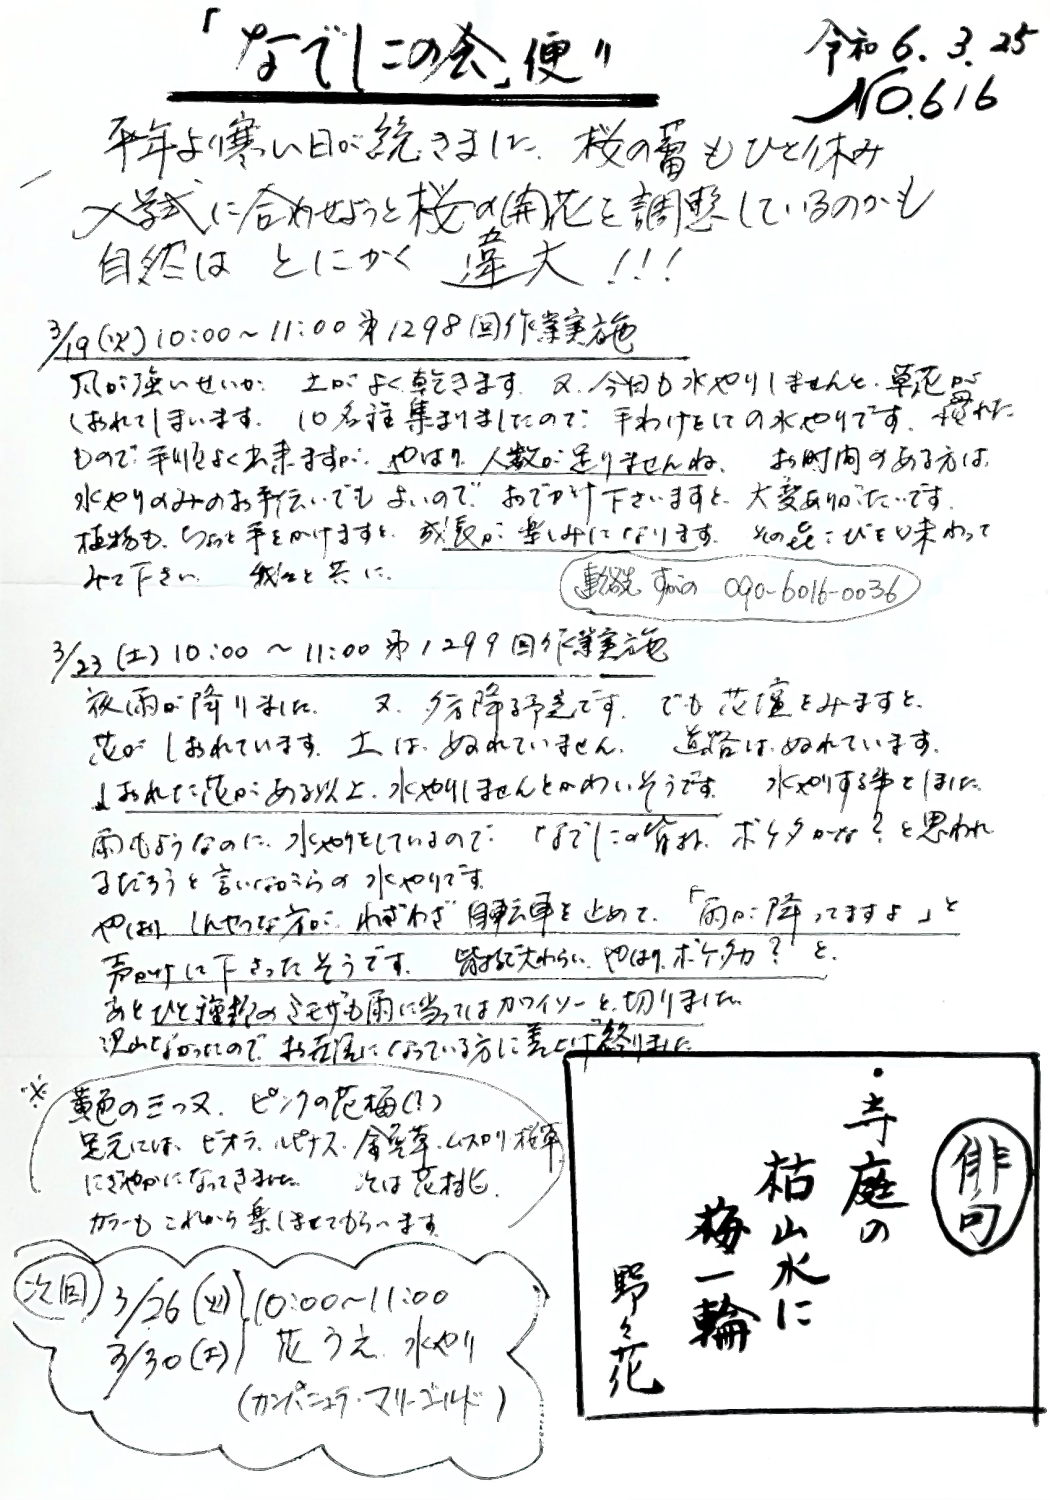 「なでしこの会」便り
令和6.3.25
NO.616
平年より寒い日が続きました。桜の蕾もひと休み
入学式に合わせようと桜の開花を調整しているのかも
自然は とにかく 偉大!!!
3/19(火)10:00~11:00 第1298回作業実施
風が強いせいか 土がよく乾きます。又、今日も水やりしませんと、草花が
しおれてしまいます。10名程集まりましたので 手わけをしての水やりです。慣れた
もので手順よく出来ますが、やはり人数が足りませんね。 お時間のある方は、
水やりのみのお手伝いでもよいので おでかけ下さいますと、大変ありがたいです。
植物も、ちょっと手をかけますと、成長が楽しみになります。その喜こびを味わって
みて下さい。 我々と共に。
連絡先 すがの 090-6016-0036
3/23(土)10:00~11:00 第1299回作業実施
夜雨が降りました。 又、夕方降る予定です。 でも花壇をみますと、
花が しおれています。土は、ぬれていません。 道路は、ぬれています。
しおれた花がある以上、水やりしませんとかわいそうです。 水やりする事としました。
雨もようなのに、水やりをしているので、「なでしこの皆さん、ボケタかな?と思われ
るだろうと言いながらの水やりです。
やはり、しんせつな方が、わざわざ自転車を止めて、「雨が降ってますよ」と
声かけて下さったそうです。 皆さんで大わらい、やはり、ボケタカ?と、
あとひと種類のミモザも雨に当ってはカワイソーと、切りました。
沢山なかったので、お花屋になっている方に差上げ終りました
※
黄色の三つ又、ピンクの花梅(?)
足元には、ビオラ、ルピナス、金魚草、ムスカリ、桜草
にぎやかになってきました。 次は花桃と、
カラーも これから楽しませてもらいます。
次回
3/26(火)
3/30(土)
10:00~11:00
花うえ、水やり
(カンパニュラ・マリーゴールド)
俳句
・寺庭の
枯山水に
梅一輪
野々花